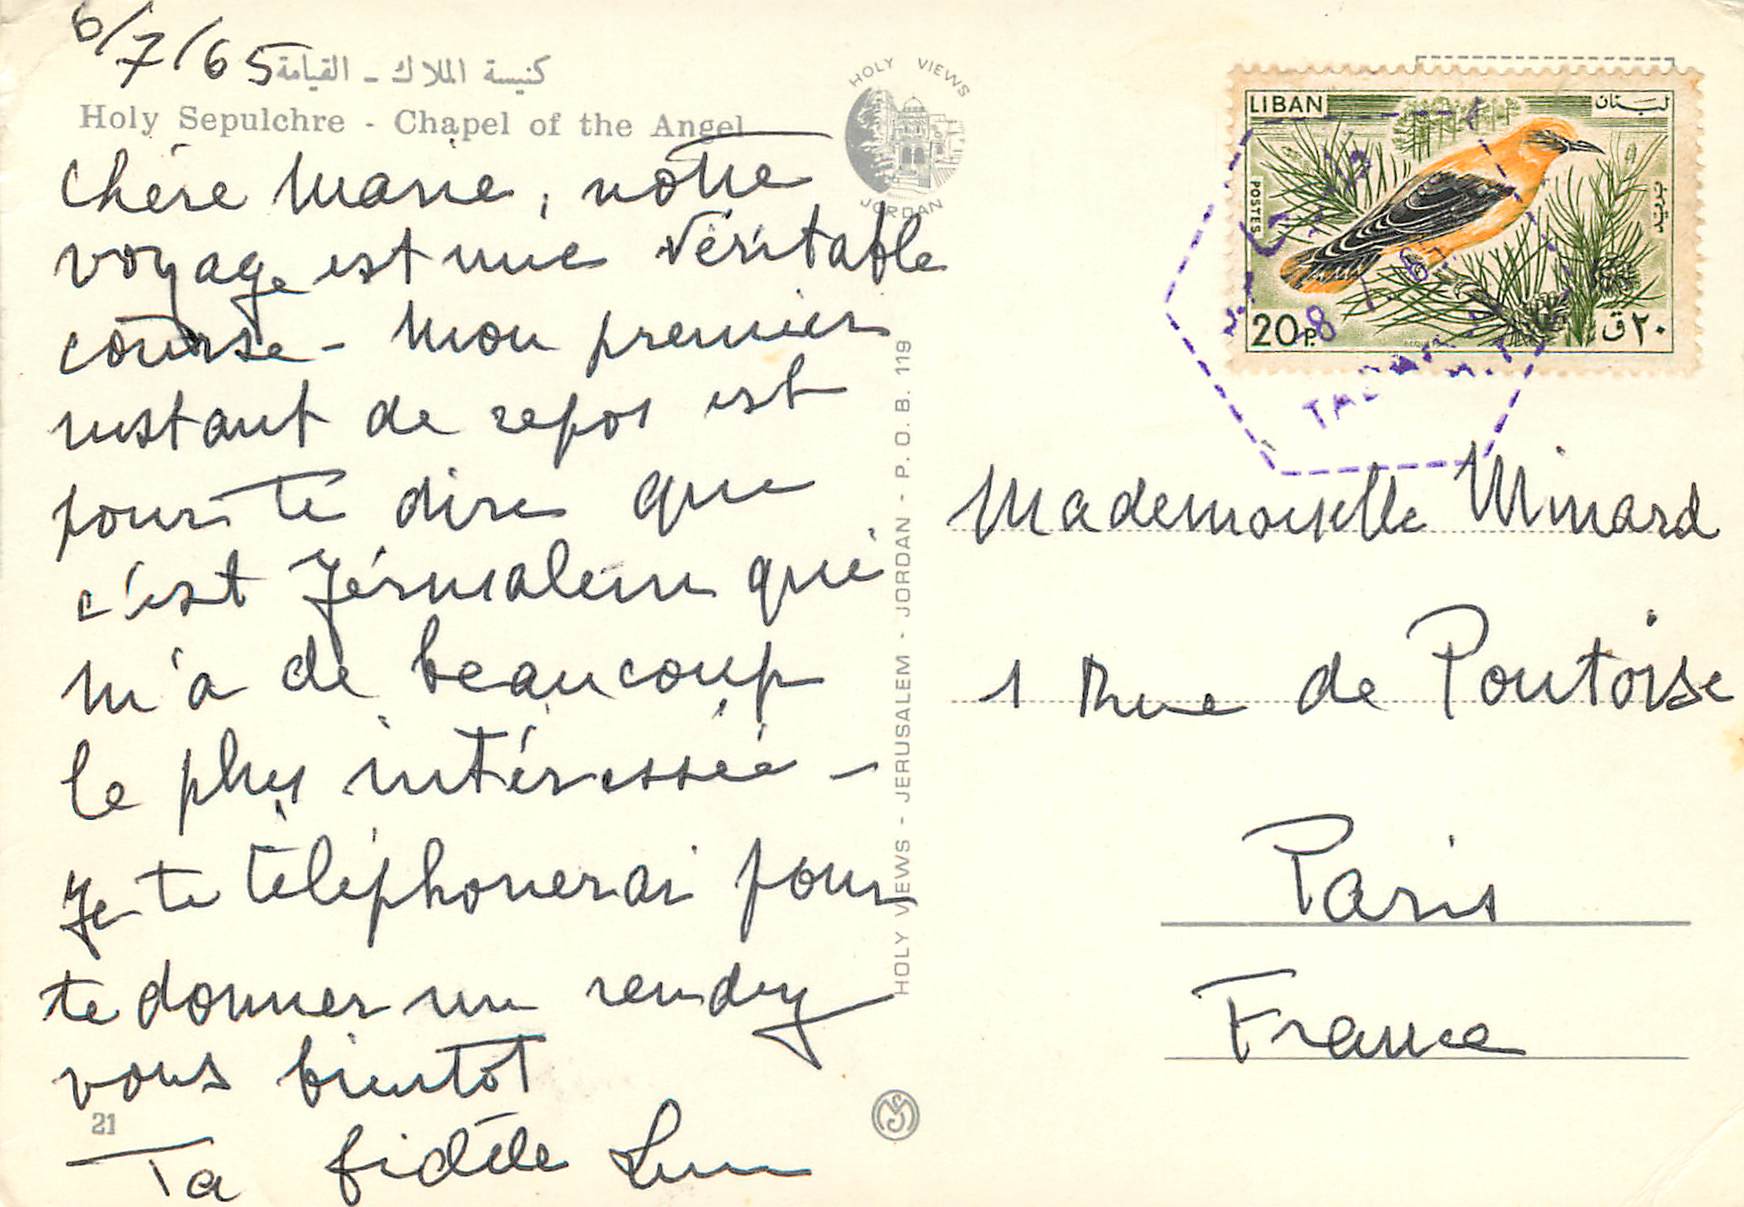 6/7/65
كنيسة الملاك - القيامة
Holy Sepulchre - Chapel of the Angel
Chère Marie, notre
voyage est une véritable
course - Mon premier
instant de repos est
pour te dire que
c'est Jérusalem qui
m'a de beaucoup
le plus intéressée -
Je te téléphonerai pour
te donner un rendez
vous bientôt
21
Ta fidèle
HOLY VIEWS
JORDAN
HOLY VIEWS - JERUSALEM - JORDAN - P.O.B. 119
LIBAN
لبنان
POSTES
بريد
20P.
٢٠ق
Mademoiselle Minard
1 Rue de Pontoise
Paris
France